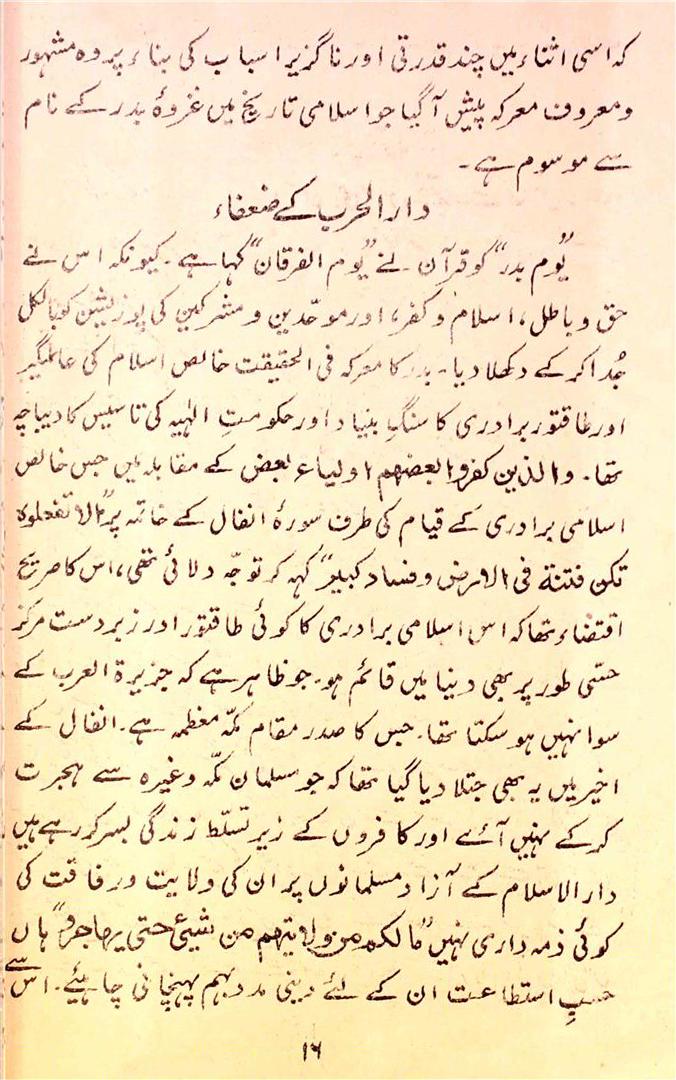 کہ اسی اثناء میں چند قدرتی اور ناگزیر اسباب کی بناء پر وہ مشہور
و معروف معرکہ پیش آگیا جو اسلامی تاریخ میں غزوۂ بدر کے نام
سے موسوم ہے۔
دار الحرب کے ضعفاء
”یوم بدر“ کو قرآن نے ”یوم الفرقان“ کہا ہے۔ کیونکہ اس نے
حق و باطل، اسلام و کفر، اور موحّدین و مشرکین کی پوزیشن کو بالکل
جُدا کر کے دکھلا دیا۔ بدر کا معرکہ فی الحقیقت خالص اسلام کی عالمگیر
اور طاقتور برادری کا سنگِ بنیاد اور حکومتِ الٰہیہ کی تاسیس کا دیباچہ
تھا۔ والذین کفروا بعضھم اولیاء بعض کے مقابلہ میں جس خالص
اسلامی برادری کے قیام کی طرف سورۂ انفال کے خاتمہ پر ”الا تفعلوہ
تکن فتنۃ فی الارض و فساد کبیر“ کہہ کر توجّہ دلائی تھی، اس کا صریح
اقتضاء تھا کہ اس اسلامی برادری کا کوئی طاقتور اور زبردست مرکز
حسّی طور پر بھی دنیا میں قائم ہو۔ جو ظاہر ہے کہ جزیرۃ العرب کے
سوا نہیں ہو سکتا تھا۔ جس کا صدر مقام مکّہ معظمہ ہے۔ انفال کے
اخیر میں یہ بھی جتلا دیا گیا تھا کہ جو مسلمان مکّہ وغیرہ سے ہجرت
کر کے نہیں آئے اور کافروں کے زیر تسلّط زندگی بسر کر رہے ہیں
دار الاسلام کے آزاد مسلمانوں پر ان کی ولایت و رفاقت کی
کوئی ذمہ داری نہیں ”مالکم من ولایتھم من شیئ حتی یھاجروا“ ہاں
حسبِ استطاعت ان کے لئے دینی مدد بہم پہنچانی چاہئیے۔ اس سے
۱۶